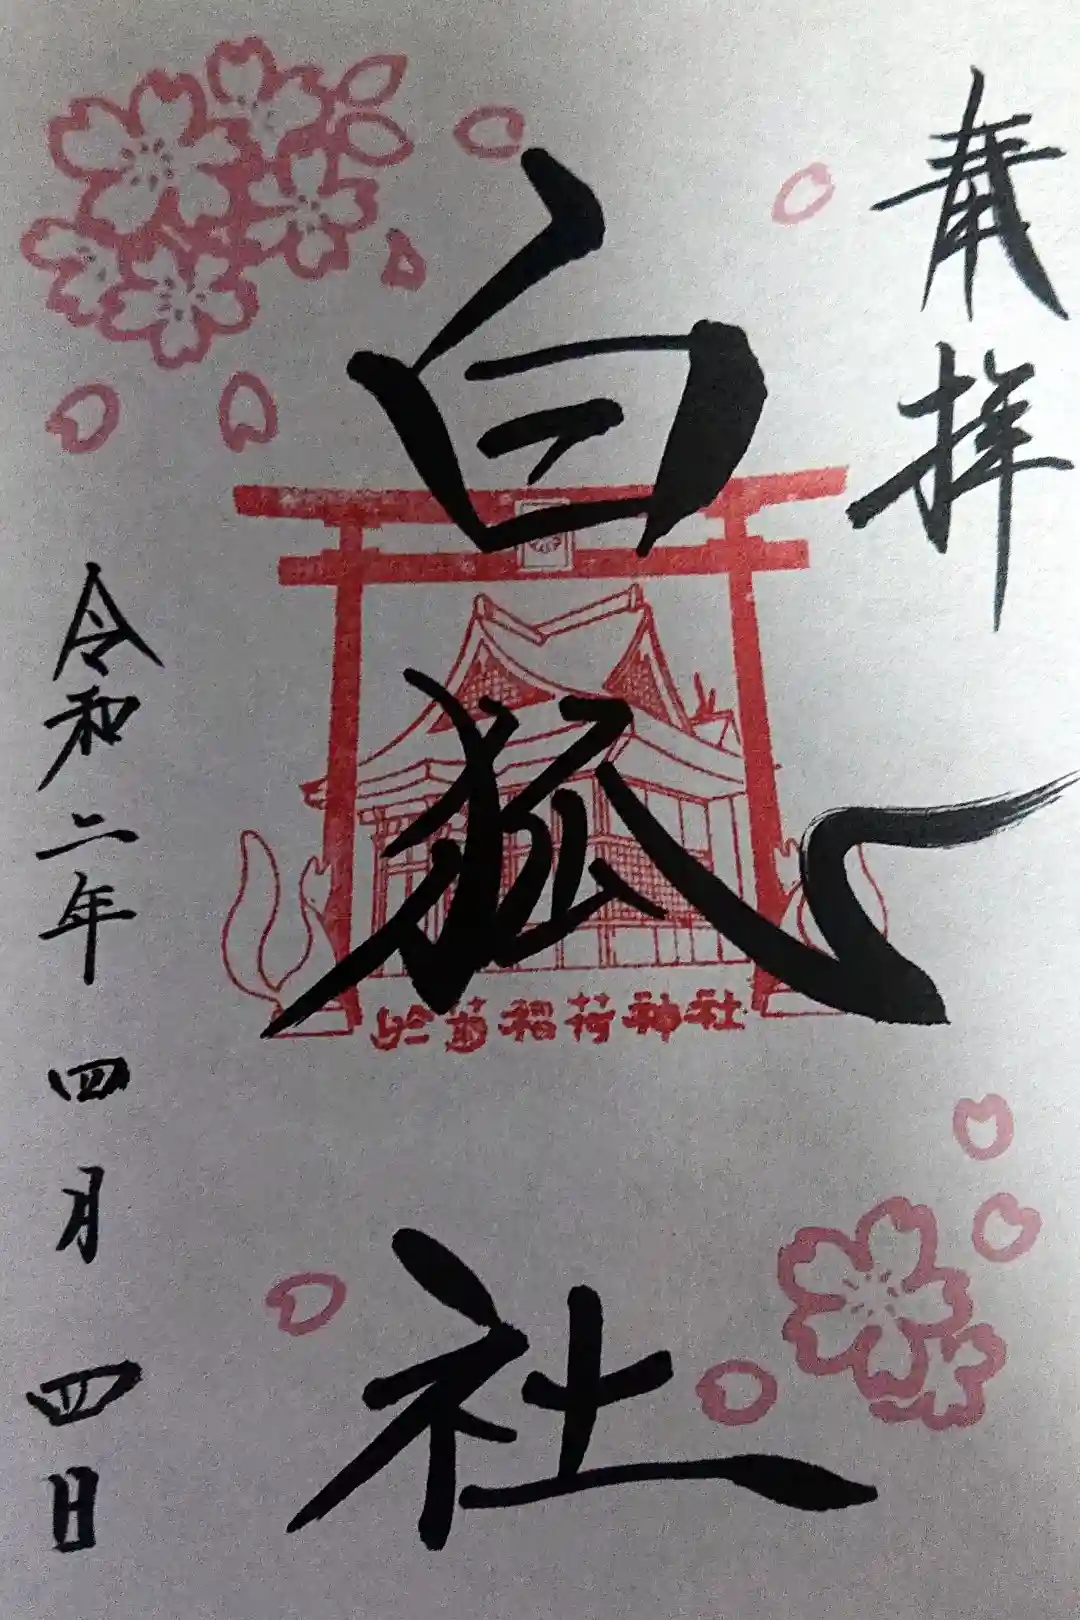 奉拝
白狐社
令和二年四月四日
稲荷神社